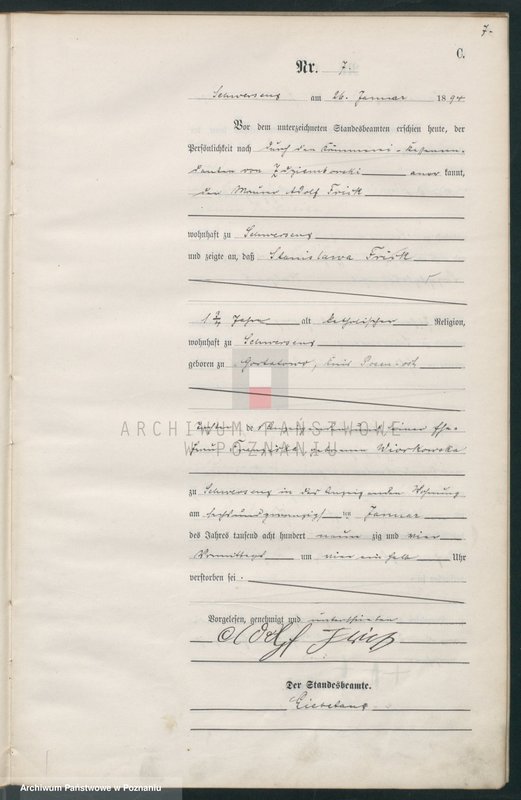 7.
C.
Nr. 7.
Schwersenz am 26. Januar 1894
Vor dem unterzeichneten Standesbeamten erschien heute, der
Persönlichkeit nach durch den Kämmerei-Kassenren-
danten von Zdziembowski anerkannt,
der Maurer Adolf Frisk
wohnhaft zu Schwersenz
und zeigte an, daß Stanislawa Frisk
Jahre alt katholischer Religion,
wohnhaft zu Schwersenz
geboren zu Gortatowo, Kreis Posen-ost
Tochter des seiner Ehe-
frau geborenen Wiorkowska
zu Schwersenz in der Wohnung
am sechsundzwanzigsten Januar
des Jahres tausend acht hundert neunzig und vier
Vormittags um vier ein halb Uhr
verstorben sei.
Vorgelesen, genehmigt und unterschrieben
Adolf Frisk
Der Standesbeamte.
ARCHIWUM PAŃSTWOWE
W POZNANIU
Archiwum Państwowe w Poznaniu